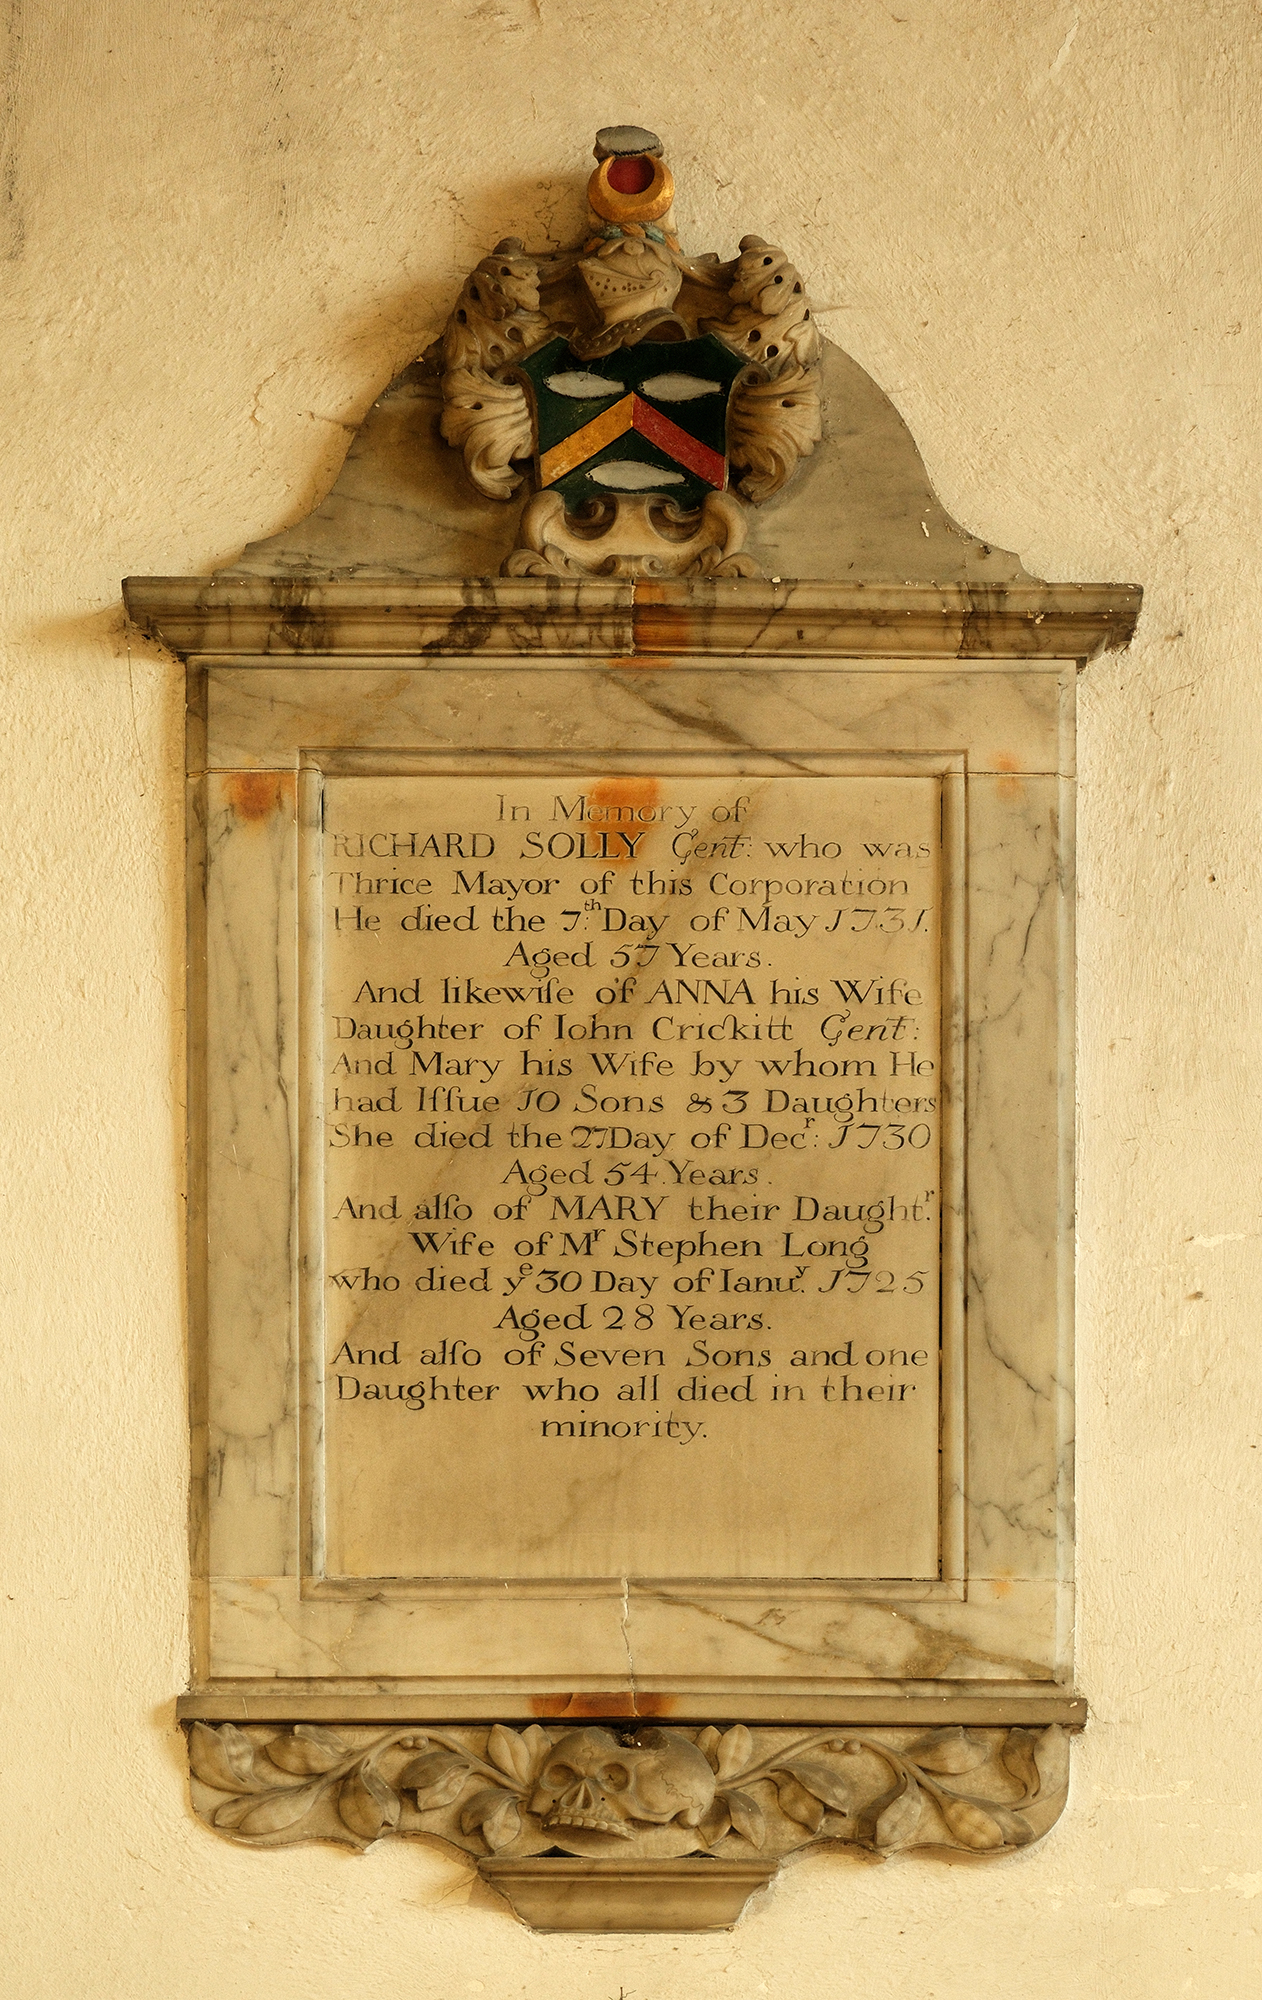 In Memory of
RICHARD SOLLY Gent: who was
Thrice Mayor of this Corporation
He died the 7.th Day of May 1731.
Aged 57 Years.
And likewiſe of ANNA his Wife
Daughter of Iohn Crickitt Gent:
And Mary his Wife by whom He
had Iſſue 10 Sons & 3 Daughters
She died the 27 Day of Decr: 1730
Aged 54 Years.
And alſo of MARY their Daught.r
Wife of Mr Stephen Long
who died ye 30 Day of Ianu.y 1725
Aged 28 Years.
And alſo of Seven Sons and one
Daughter who all died in their
minority.